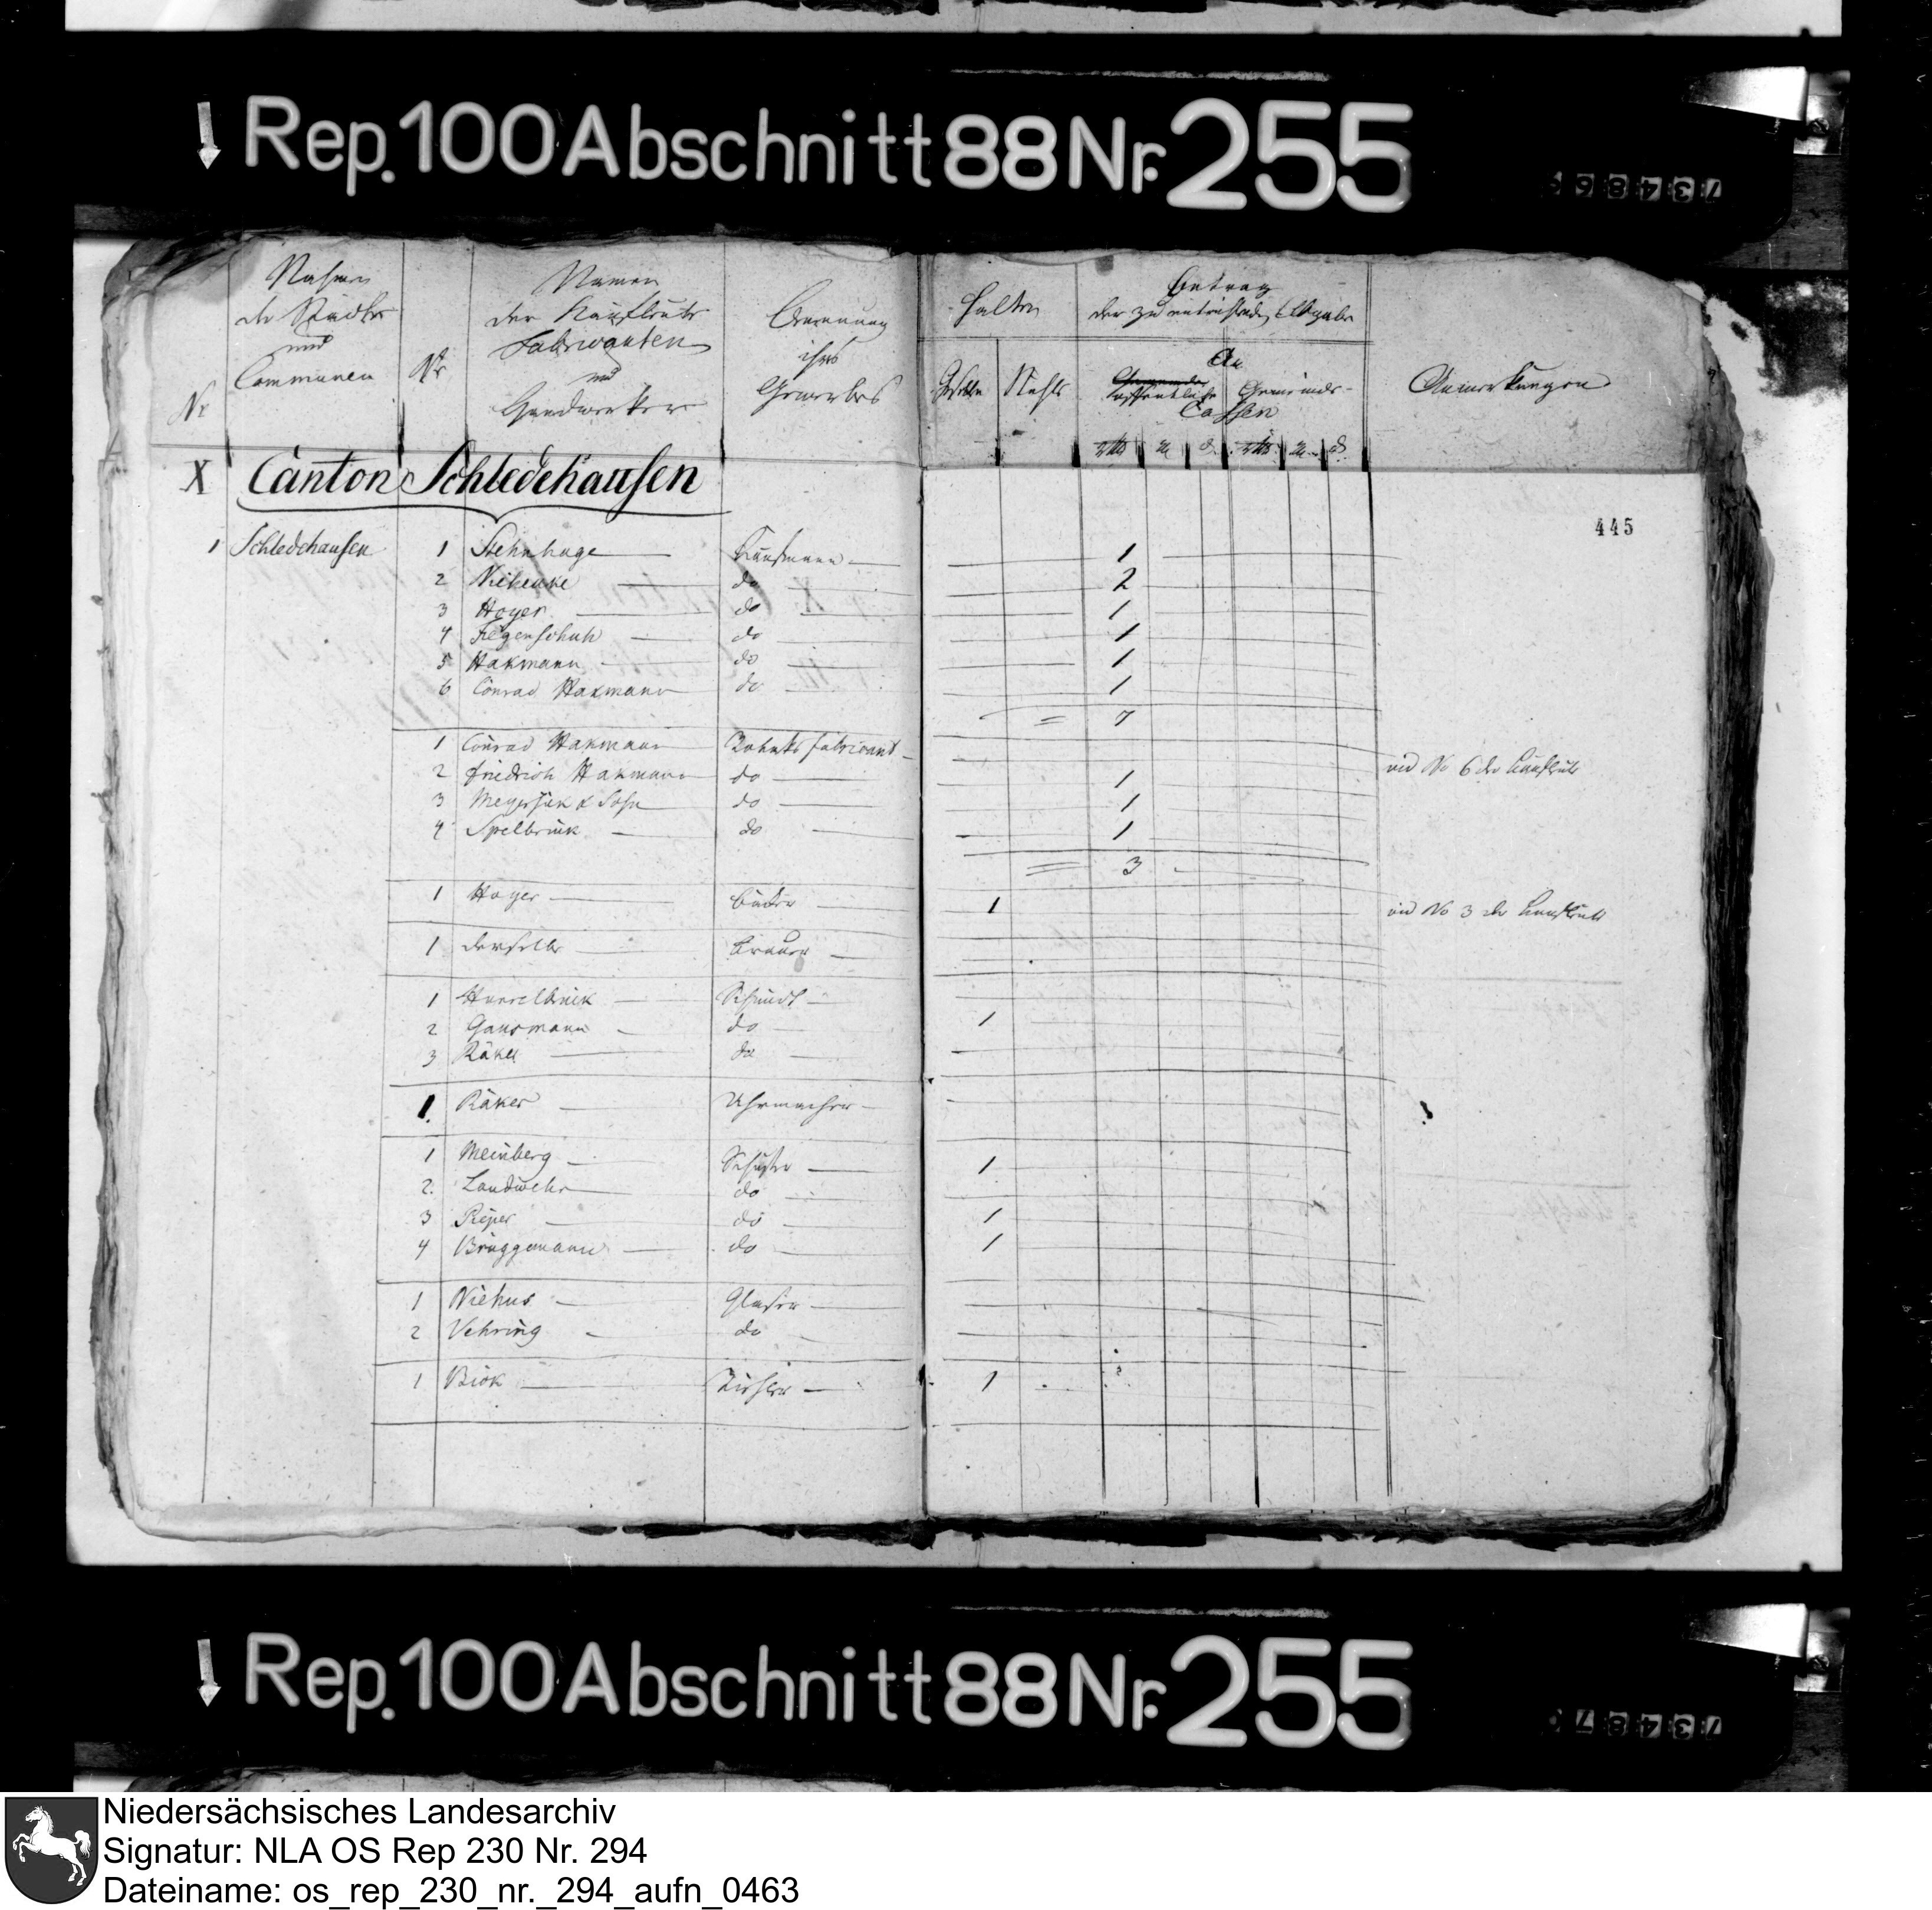 Rep. 100 Abschnitt 88 Nr. 255
73486
Nr
Nahmen
der Städte
und
Communen
Nr
Namen
der Kaufleute
Fabricanten
und
Handwerker
Benennung
ihres
Gewerbes
Halten
Gesellen
Betrag
der zu entrichtenden Abgabe
An
öffentliche
Gemeinde-
Cassen
Anmerkungen
X Canton Schledehausen
445
1 Schledehausen 1 Stehnhage Kaufmann 1
2 Niehenke do 2
3 Hoyer do 1
4 Fiegenschuh do 1
5 Hakmann do 1
6 Conrad Hakmann do 1
= 7
1 Conrad Hakmann Tobaks fabricant vid No 6 der Kaufleute
2 Friedrich Hakmann do 1
3 & Sohn do 1
4 Spelbrink do 1
= 3
1 Hoyer Bäcker 1 vid No 3 der Kaufleute
1 derselbe Brauer
1 Schmidt
2 Gausmann do 1
3 Räker do
1 Räker Uhrmacher
1 Meinberg Schuster 1
2 Landwehr do
3 Pieper do 1
4 Brüggemann do 1
1 Niehus Glaser
2 Vehring do
1 Tischler 1
Rep. 100 Abschnitt 88 Nr. 255
73487
Niedersächsisches Landesarchiv
Signatur: NLA OS Rep 230 Nr. 294
Dateiname: os_rep_230_nr._294_aufn_0463